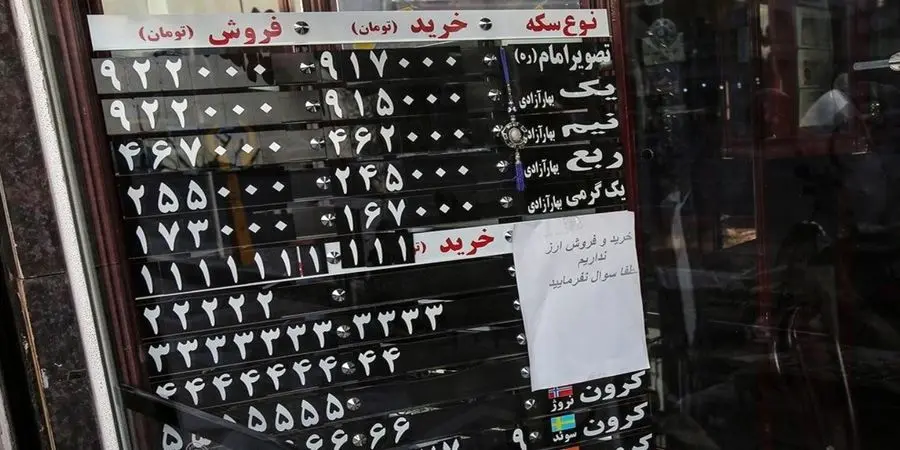 نوع سکه خرید (تومان) فروش (تومان)
تصویر امام (ره) ۹۱۷۰۰۰ ۹۲۲۰۰۰
یک بهارآزادی ۹۱۵۰۰۰ ۹۲۲۰۰۰
نیم بهارآزادی ۴۶۲۰۰۰ ۴۶۷۰۰۰
ربع بهارآزادی ۲۴۵۰۰۰ ۲۵۵۰۰۰
یک گرمی بهارآزادی ۱۶۷۰۰۰ ۱۷۳۰۰۰
خرید
۱۱۱ ۱۱۱۱۱۱۱
۲۲۲۲۲
۳۳۳۳ ۳۳۳۳۳۳۳
۴۴ ۴۴۴۴۴۴
۵۵۵۵
کرون نروژ
کرون سوئد ۹ ۶۶ ۶۶
خرید و فروش ارز
نداریم
لطفا سوال نفرمایید